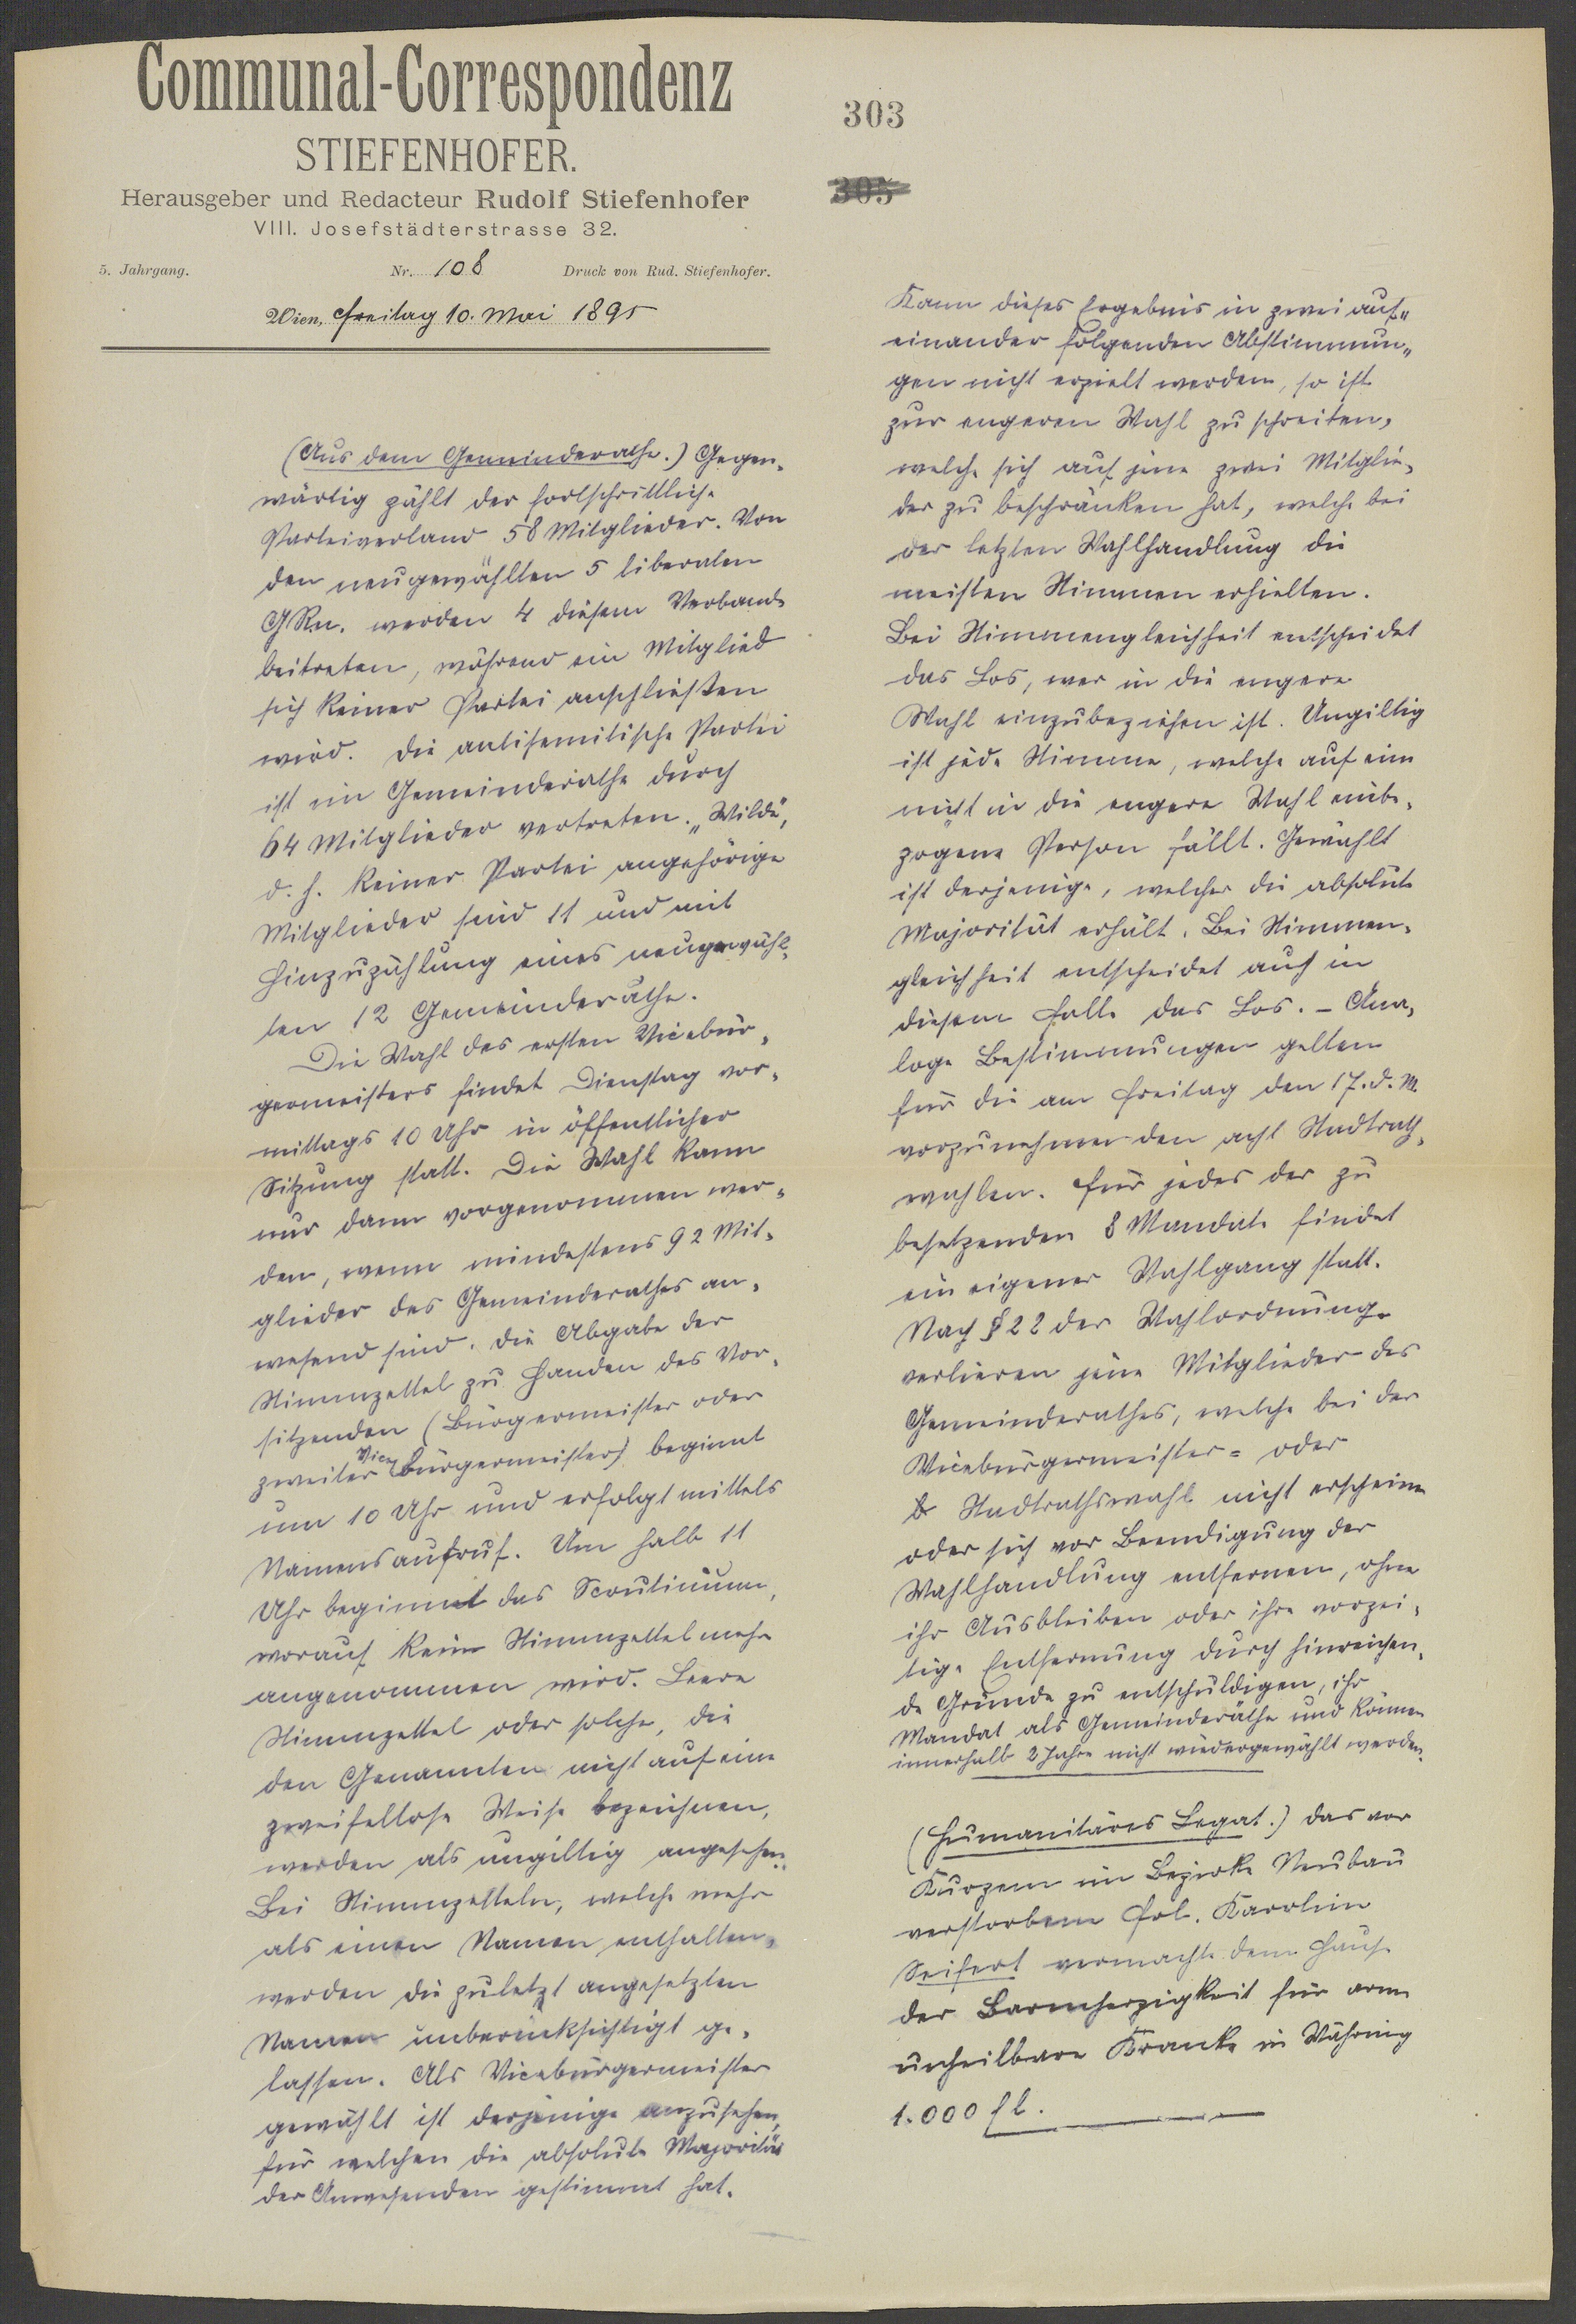 Communal-Correspondenz
STIEFENHOFER.
Herausgeber und Redacteur Rudolf Stiefenhofer
VIII. Josefstädterstrasse 32.
5. Jahrgang. Nr. 108 Druck von Rud. Stiefenhofer.
Wien, Freitag 10. Mai 1895
(Aus dem Gemeinderathe.) Gegen-
wärtig zählt der fortschrittliche
Parteiverband 58 Mitglieder. Von
den neugewählten 5 liberalen
GRn. werden 4 diesem Verbande
beitreten, während ein Mitglied
sich keiner Partei anschließen
wird. Die antisemitische Partei
ist im Gemeinderathe durch
64 Mitglieder vertreten. „Wilde",
d. h. keiner Partei angehörige
Mitglieder sind 11 und mit
Hinzuzählung eines neugewähl-
ten 12 Gemeinderäthe.
Die Wahl des ersten Vicebür-
germeisters findet Dienstag vor-
mittags 10 Uhr in öffentlicher
Sitzung statt. Die Wahl kann
nur dann vorgenommen wer-
den, wenn mindestens 92 Mit-
glieder des Gemeinderathes an-
wesend sind. Die Abgabe der
Stimmzettel zu Handen des Vor-
sitzenden (Bürgermeister oder
zweiter Vicebürgermeister) beginnt
um 10 Uhr und erfolgt mittels
Namensaufruf. Um halb 11
Uhr beginnt das Scrutinium,
worauf keine Stimmzettel mehr
angenommen wird. Leere
Stimmzettel oder solche, die
den Genannten nicht auf eine
zweifellose Weise bezeichnen,
werden als ungiltig angesehen.
Bei Stimmzetteln, welche mehr
als einen Namen enthalten,
werden die zuletzt angesetzten
Namen unberücksichtigt ge-
lassen. Als Vicebürgermeister
gewählt ist derjenige anzusehen,
für welchen die absolute Majorität
der Anwesenden gestimmt hat.
303
305
Kann dieses Ergebnis in zwei auf-
einander folgenden Abstimmun-
gen nicht erzielt werden, so ist
zur engeren Wahl zu schreiten,
welche sich auf jene zwei Mitglie-
der zu beschränken hat, welche bei
der letzten Wahlhandlung die
meisten Stimmen erhielten.
Bei Stimmengleichheit entscheidet
das Los, wer in die engere
Wahl einzubeziehen ist. Ungiltig
ist jede Stimme, welche auf eine
nicht in die engere Wahl einbe-
zogene Person fällt. Gewählt
ist derjenige, welcher die absolute
Majorität erhält. Bei Stimmen-
gleichheit entscheidet auch in
diesem Falle das Los. – Ana-
loge Bestimmungen gelten
für die am Freitag den 17. d. M.
vorzunehmenden acht Stadtrath-
wahlen. Für jedes der zu
besetzenden 8 Mandate findet
ein eigener Wahlgang statt.
Nach § 22 der Wahlordnung
verlieren jene Mitglieder des
Gemeinderathes, welche bei der
Vicebürgermeister- oder
Stadtrathswahl nicht erscheinen
oder sich vor Beendigung der
Wahlhandlung entfernen, ohne
ihr Ausbleiben oder ihre vorzei-
tige Entfernung durch hinreichen-
de Gründe zu entschuldigen, ihr
Mandat als Gemeinderäthe und können
innerhalb 2 Jahre nicht wiedergewählt werden.
(Humanitäres Legat.) Das vor
Kurzem im Bezirke Neubau
verstorbene Frl. Karoline
Seifert vermachte dem Hause
der Barmherzigkeit für arme
unheilbare Kranke in Währing
1.000 fl.